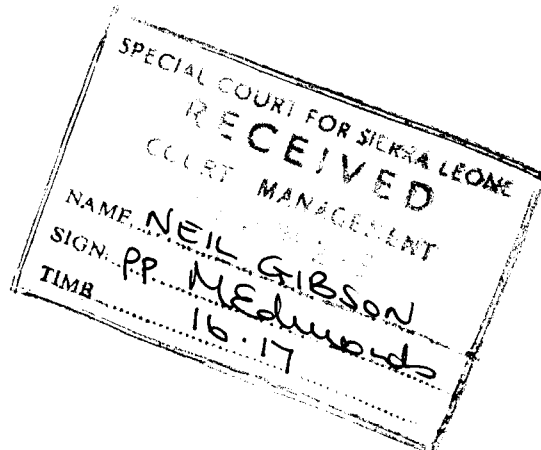 SPECIAL COURT FOR SIERRA LEONE
RECEIVED
COURT MANAGEMENT
NAME NEIL GIBSON
SIGN pp MEdwards
TIME 16.17